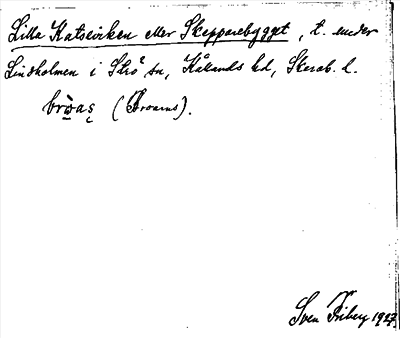 Lilla Katsviken eller Skepparebygget, t. under
Lindholmen i Strö sn, Kållands hd, Skarab. l.
(Broarns).
Sven Friberg 1927.